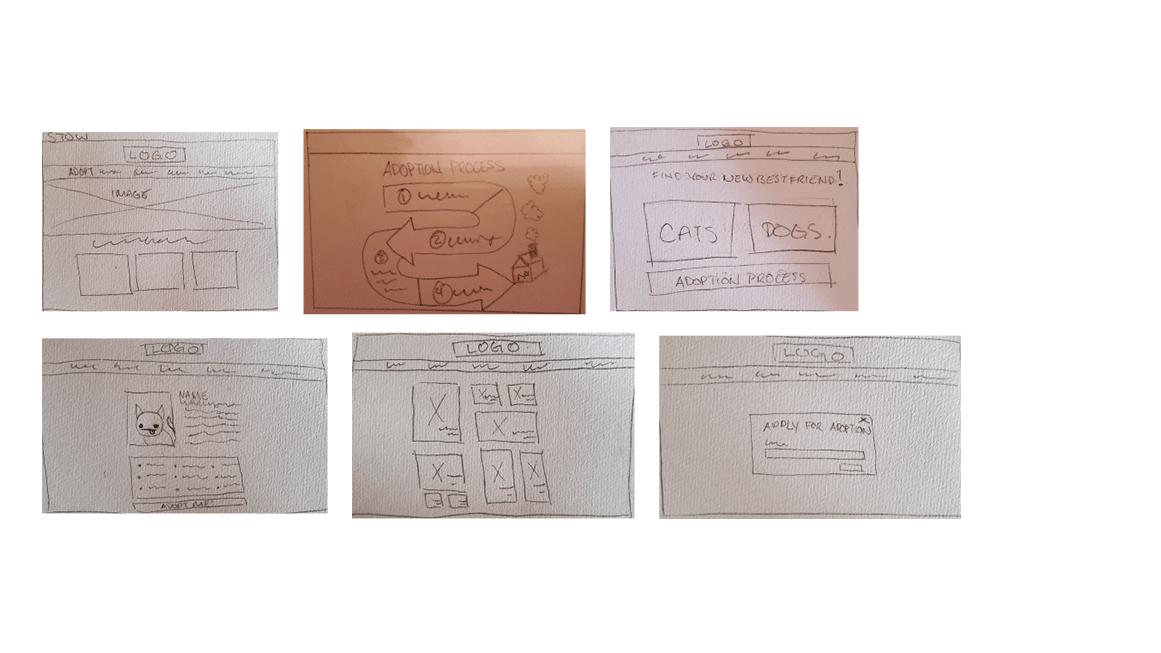 STOW
LOGO
ADOPT
IMAGE
ADOPTION PROCESS
1
2
3
4
LOGO
FIND YOUR NEW BEST FRIEND!
CATS
DOGS.
ADOPTION PROCESS
LOGO
NAME
LOGO
LOGO
APPLY FOR ADOPTION
X